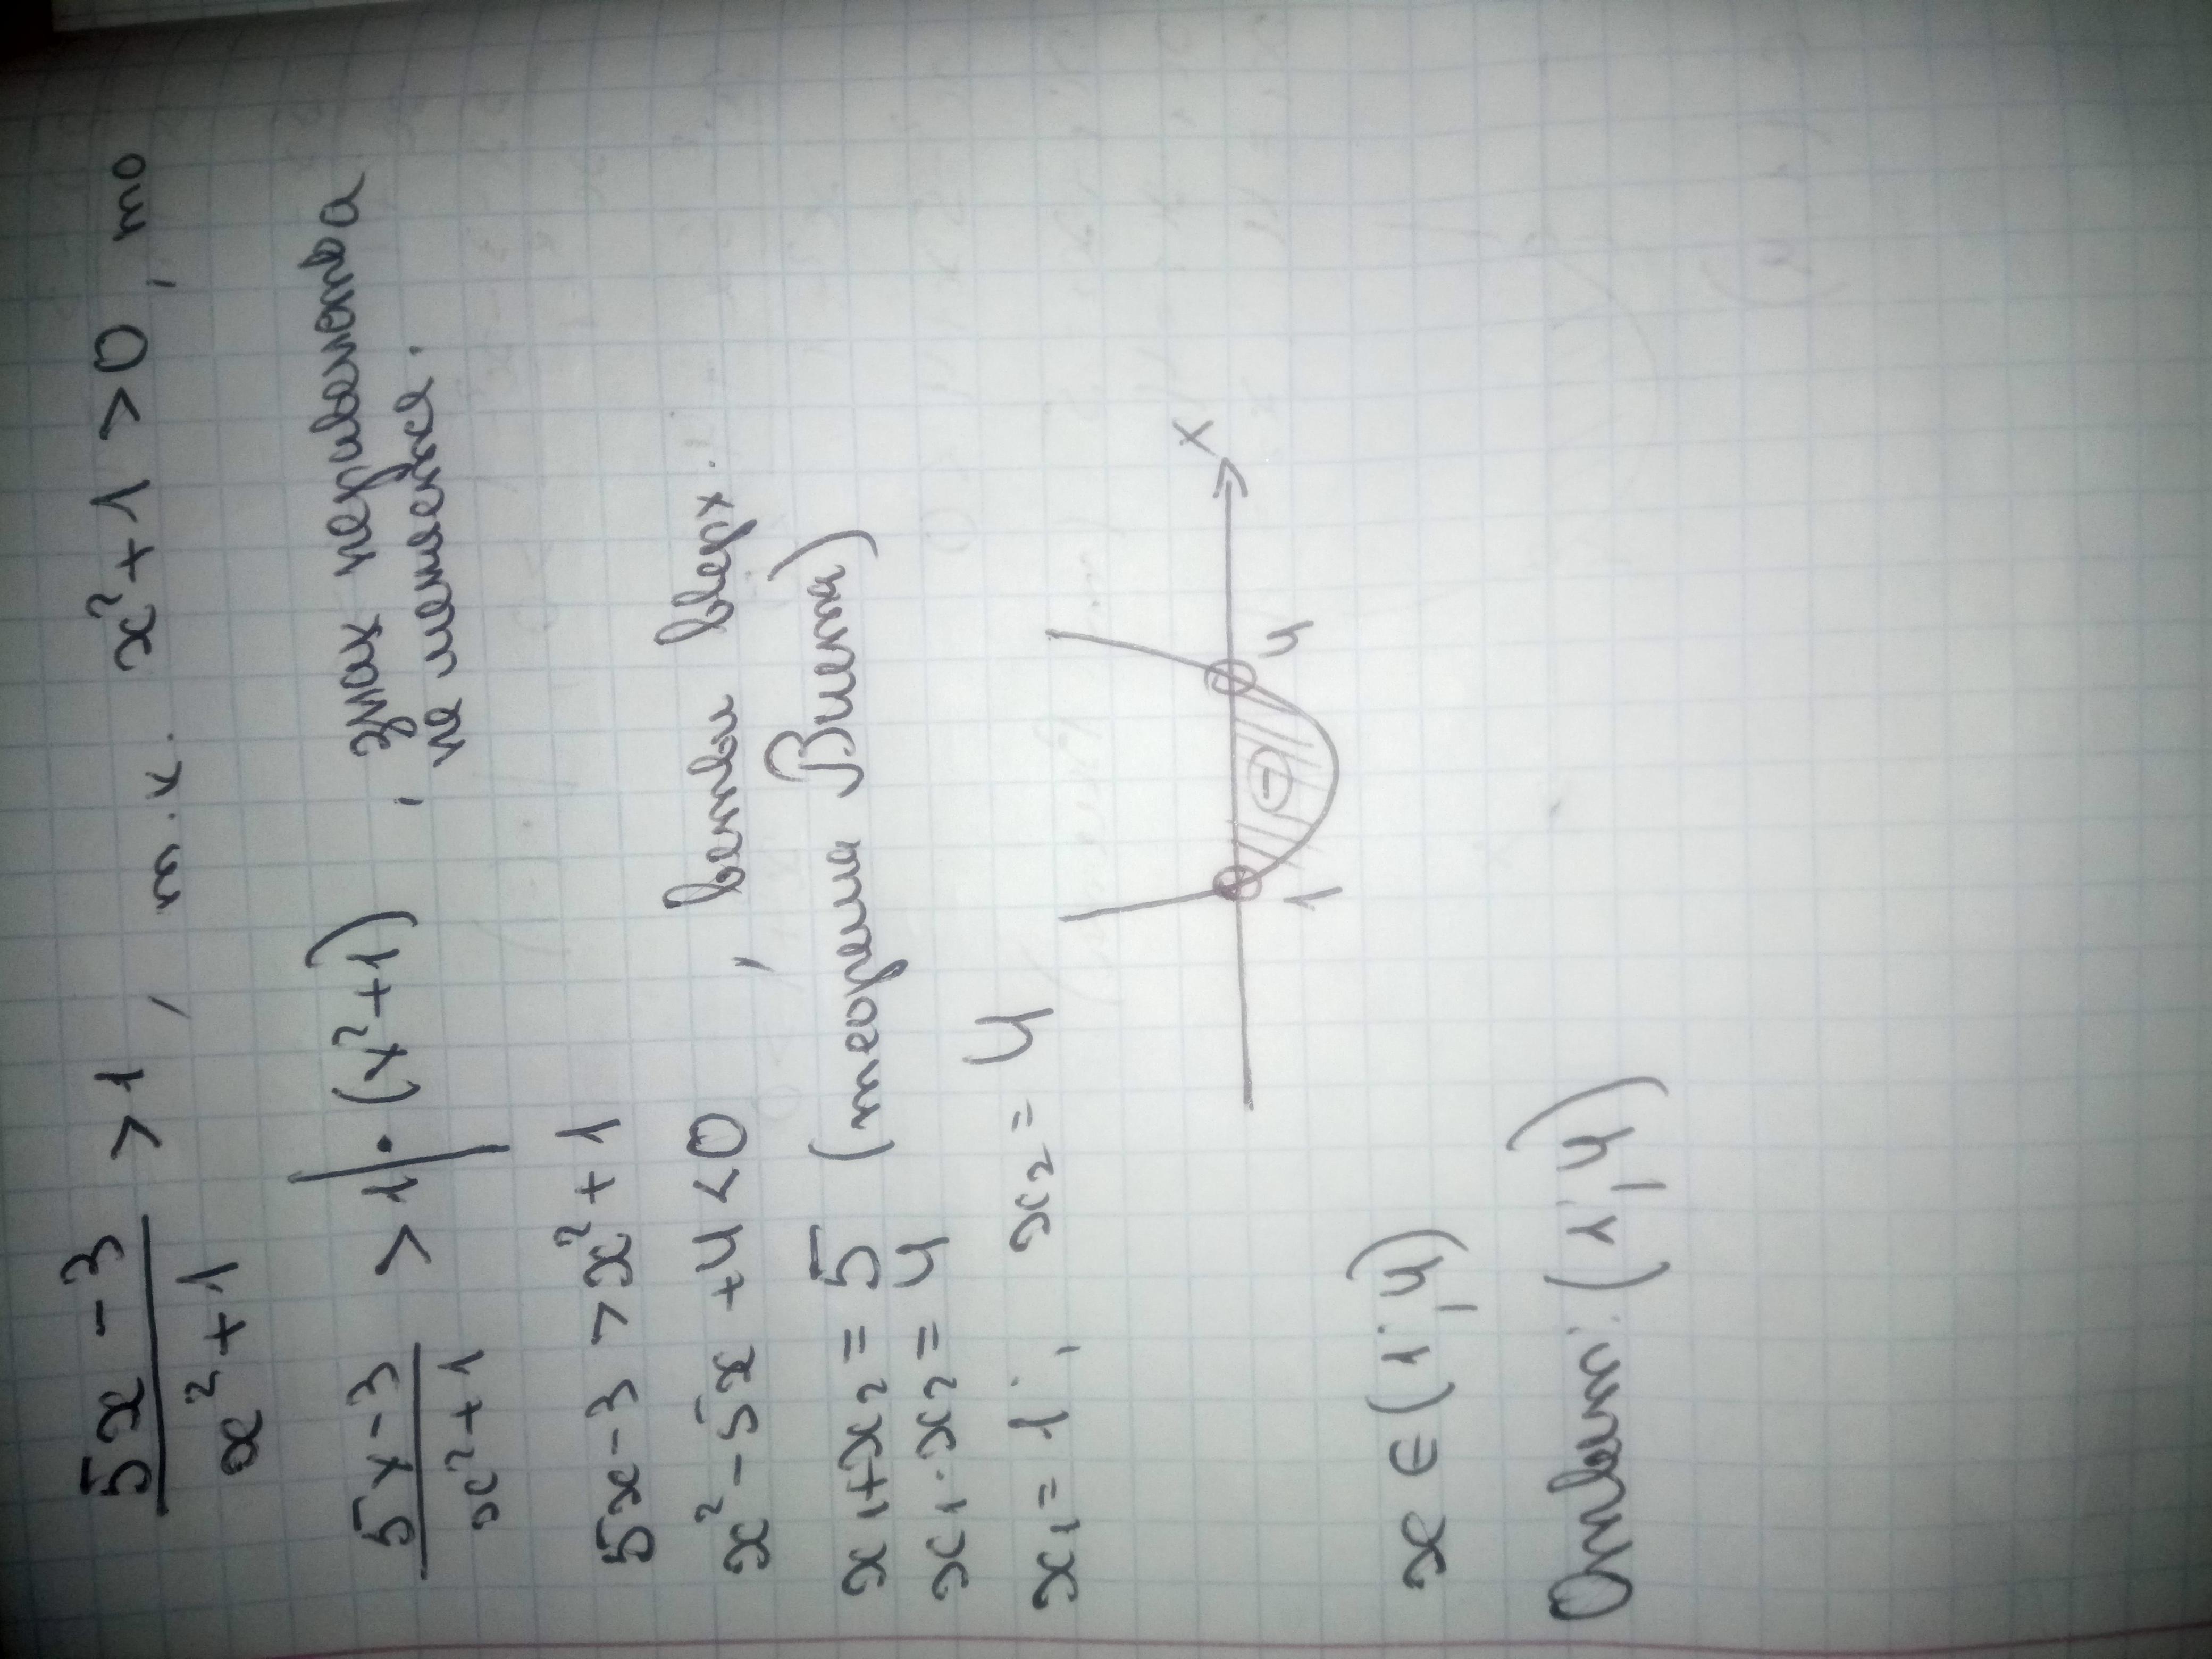 5x - 3 / x² + 1 > 1, т.к. x² + 1 > 0, то
5x - 3 / x² + 1 > 1 | · (x² + 1), знак неравенства
не меняется.
5x - 3 > x² + 1
x² - 5x + 4 < 0, ветви вверх.
x₁ + x₂ = 5 (теорема Виета)
x₁ · x₂ = 4
x₁ = 1; x₂ = 4
x
1 4
−
x ∈ (1; 4)
Ответ: (1; 4)